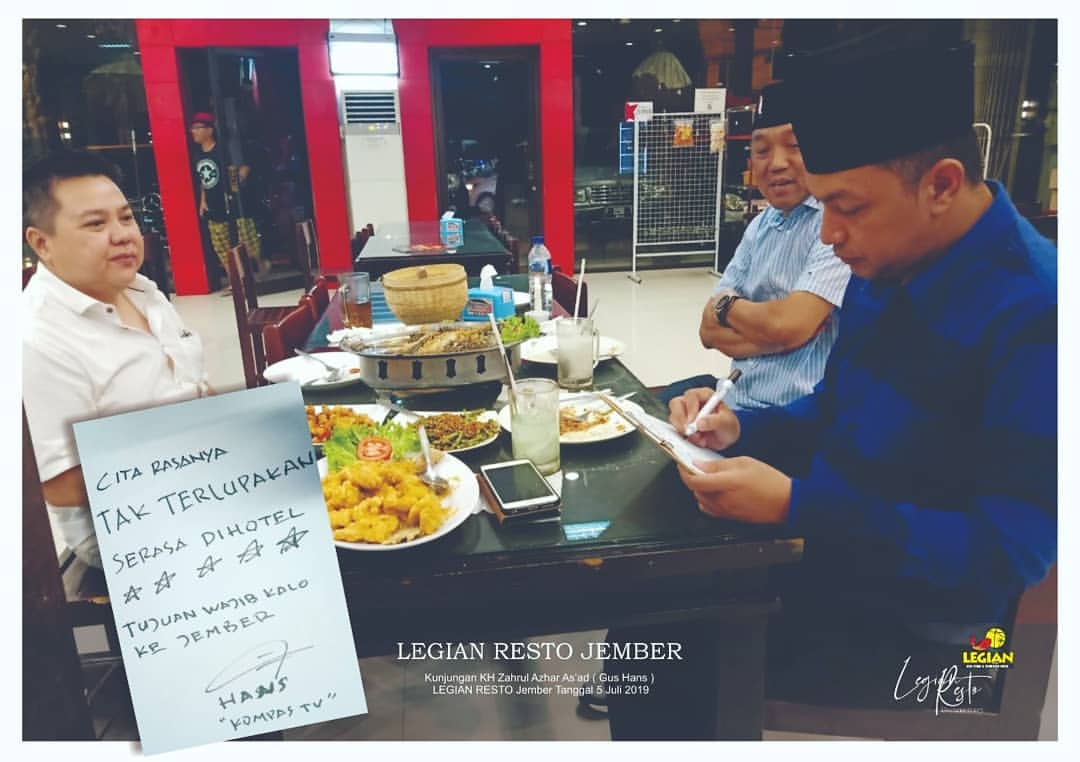 CITA RASANYA
TAK TERLUPAKAN
SERASA DIHOTEL
TUJUAN WAJIB KALO
KE JEMBER
HANS
"KOMPAS TV"
LEGIAN RESTO JEMBER
Kunjungan KH Zahrul Azhar As'ad ( Gus Hans )
LEGIAN RESTO Jember Tanggal 5 Juli 2019
LEGIAN
Legian
Resto